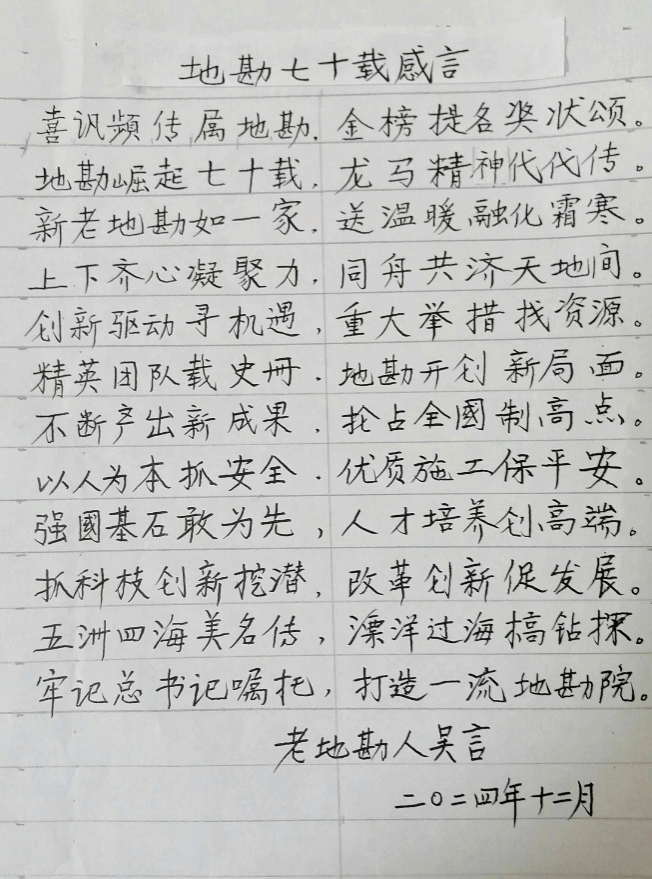 地勘七十载感言
喜讯频传属地勘，金榜提名奖状颂。
地勘崛起七十载，龙马精神代代传。
新老地勘如一家，送温暖融化霜寒。
上下齐心凝聚力，同舟共济天地间。
创新驱动寻机遇，重大举措找资源。
精英团队载史册．地勘开创新局面。
不断产出新成果，抢占全國制高点。
以人为本抓安全．优质施工保平安。
强國基石敢为先，人才培养创高端。
抓科技创新挖潜，改革创新促发展。
五洲四海美名传，漂洋过海搞钻探。
牢记总书记嘱托，打造一流地勘院。
老地勘人吴言
二〇二四年十二月